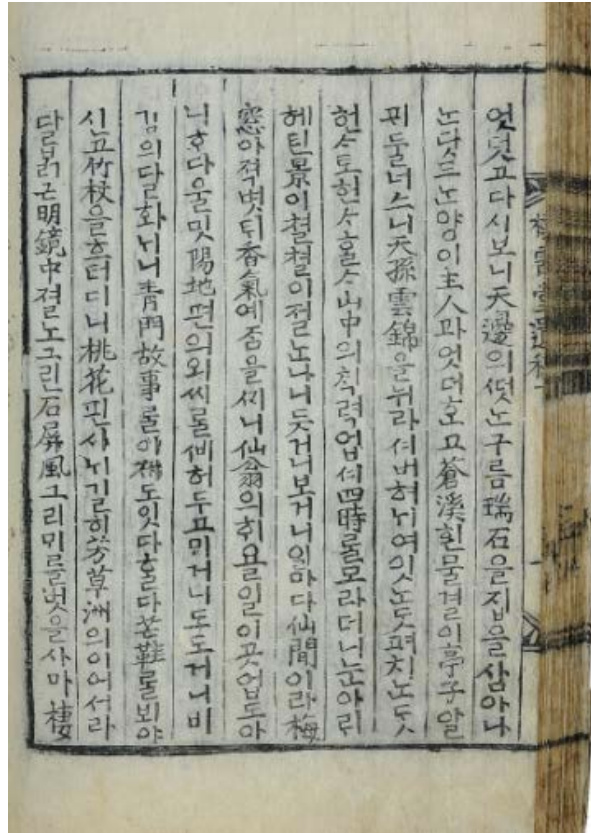 엇덧고다시보니天邊의ᄯᅥᆺᄂᆞᆫ구름瑞石을집을삼아나
ᄂᆞᆫᄃᆞᆺ드ᄂᆞᆫ양이主人과엇더ᄒᆞᆫ고蒼溪흰물결이亭子알
ᄑᆡ둘너스니天孫雲錦을뉘라셔버혀ᄂᆡ여잇ᄂᆞᆫᄃᆞᆺ펴치ᄂᆞᆫᄃᆞᆺ
헌ᄉᆞ토헌ᄉᆞᄒᆞᆯᄉᆞ山中의ᄎᆡᆨ력업셔四時ᄅᆞᆯ모라더니눈아ᄅᆡ
헤틴景이쳘쳘이졀노나니듯거니보거니일마다仙間이라梅
窓아젹볏ᄐᆡ香氣예ᄌᆞᆷ을ᄭᅵ니仙翁의ᄒᆡ욜일이곳업도아
니ᄒᆞ다울밋陽地편의외씨ᄅᆞᆯᄲᅵ허두고ᄆᆡ거니도도거니비
김의달화ᄂᆡ니靑門故事ᄅᆞᆯ이제도잇다ᄒᆞᆯ다芒鞋ᄅᆞᆯᄇᆡ야
신고竹杖을흐터디니桃花핀시ᄂᆡ길히芳草洲의이어셔라
달ᄇᆞᆯ근明鏡中졀노그린石屛風그리ᄆᆡᄅᆞᆯ벗을사마棲